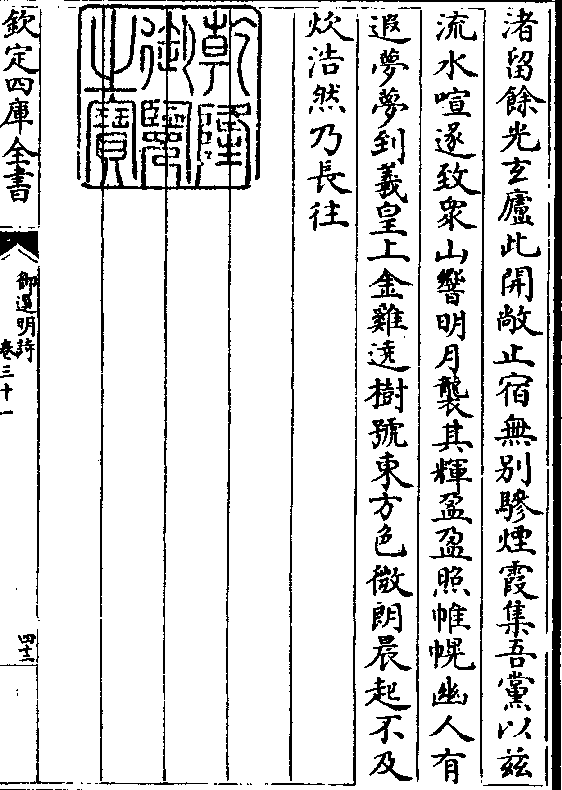 渚留餘光玄廬此開敞止宿無別驂煙霞集吾黨以兹
流水喧遂致衆山響明月襲其輝盈盈照帷幌幽人有
遐夢夢到羲皇上金雞遶樹號東方色微朗晨起不及
炊浩然乃長往
乾隆御覽之寶
欽定四庫全書
御選明詩
卷三十一